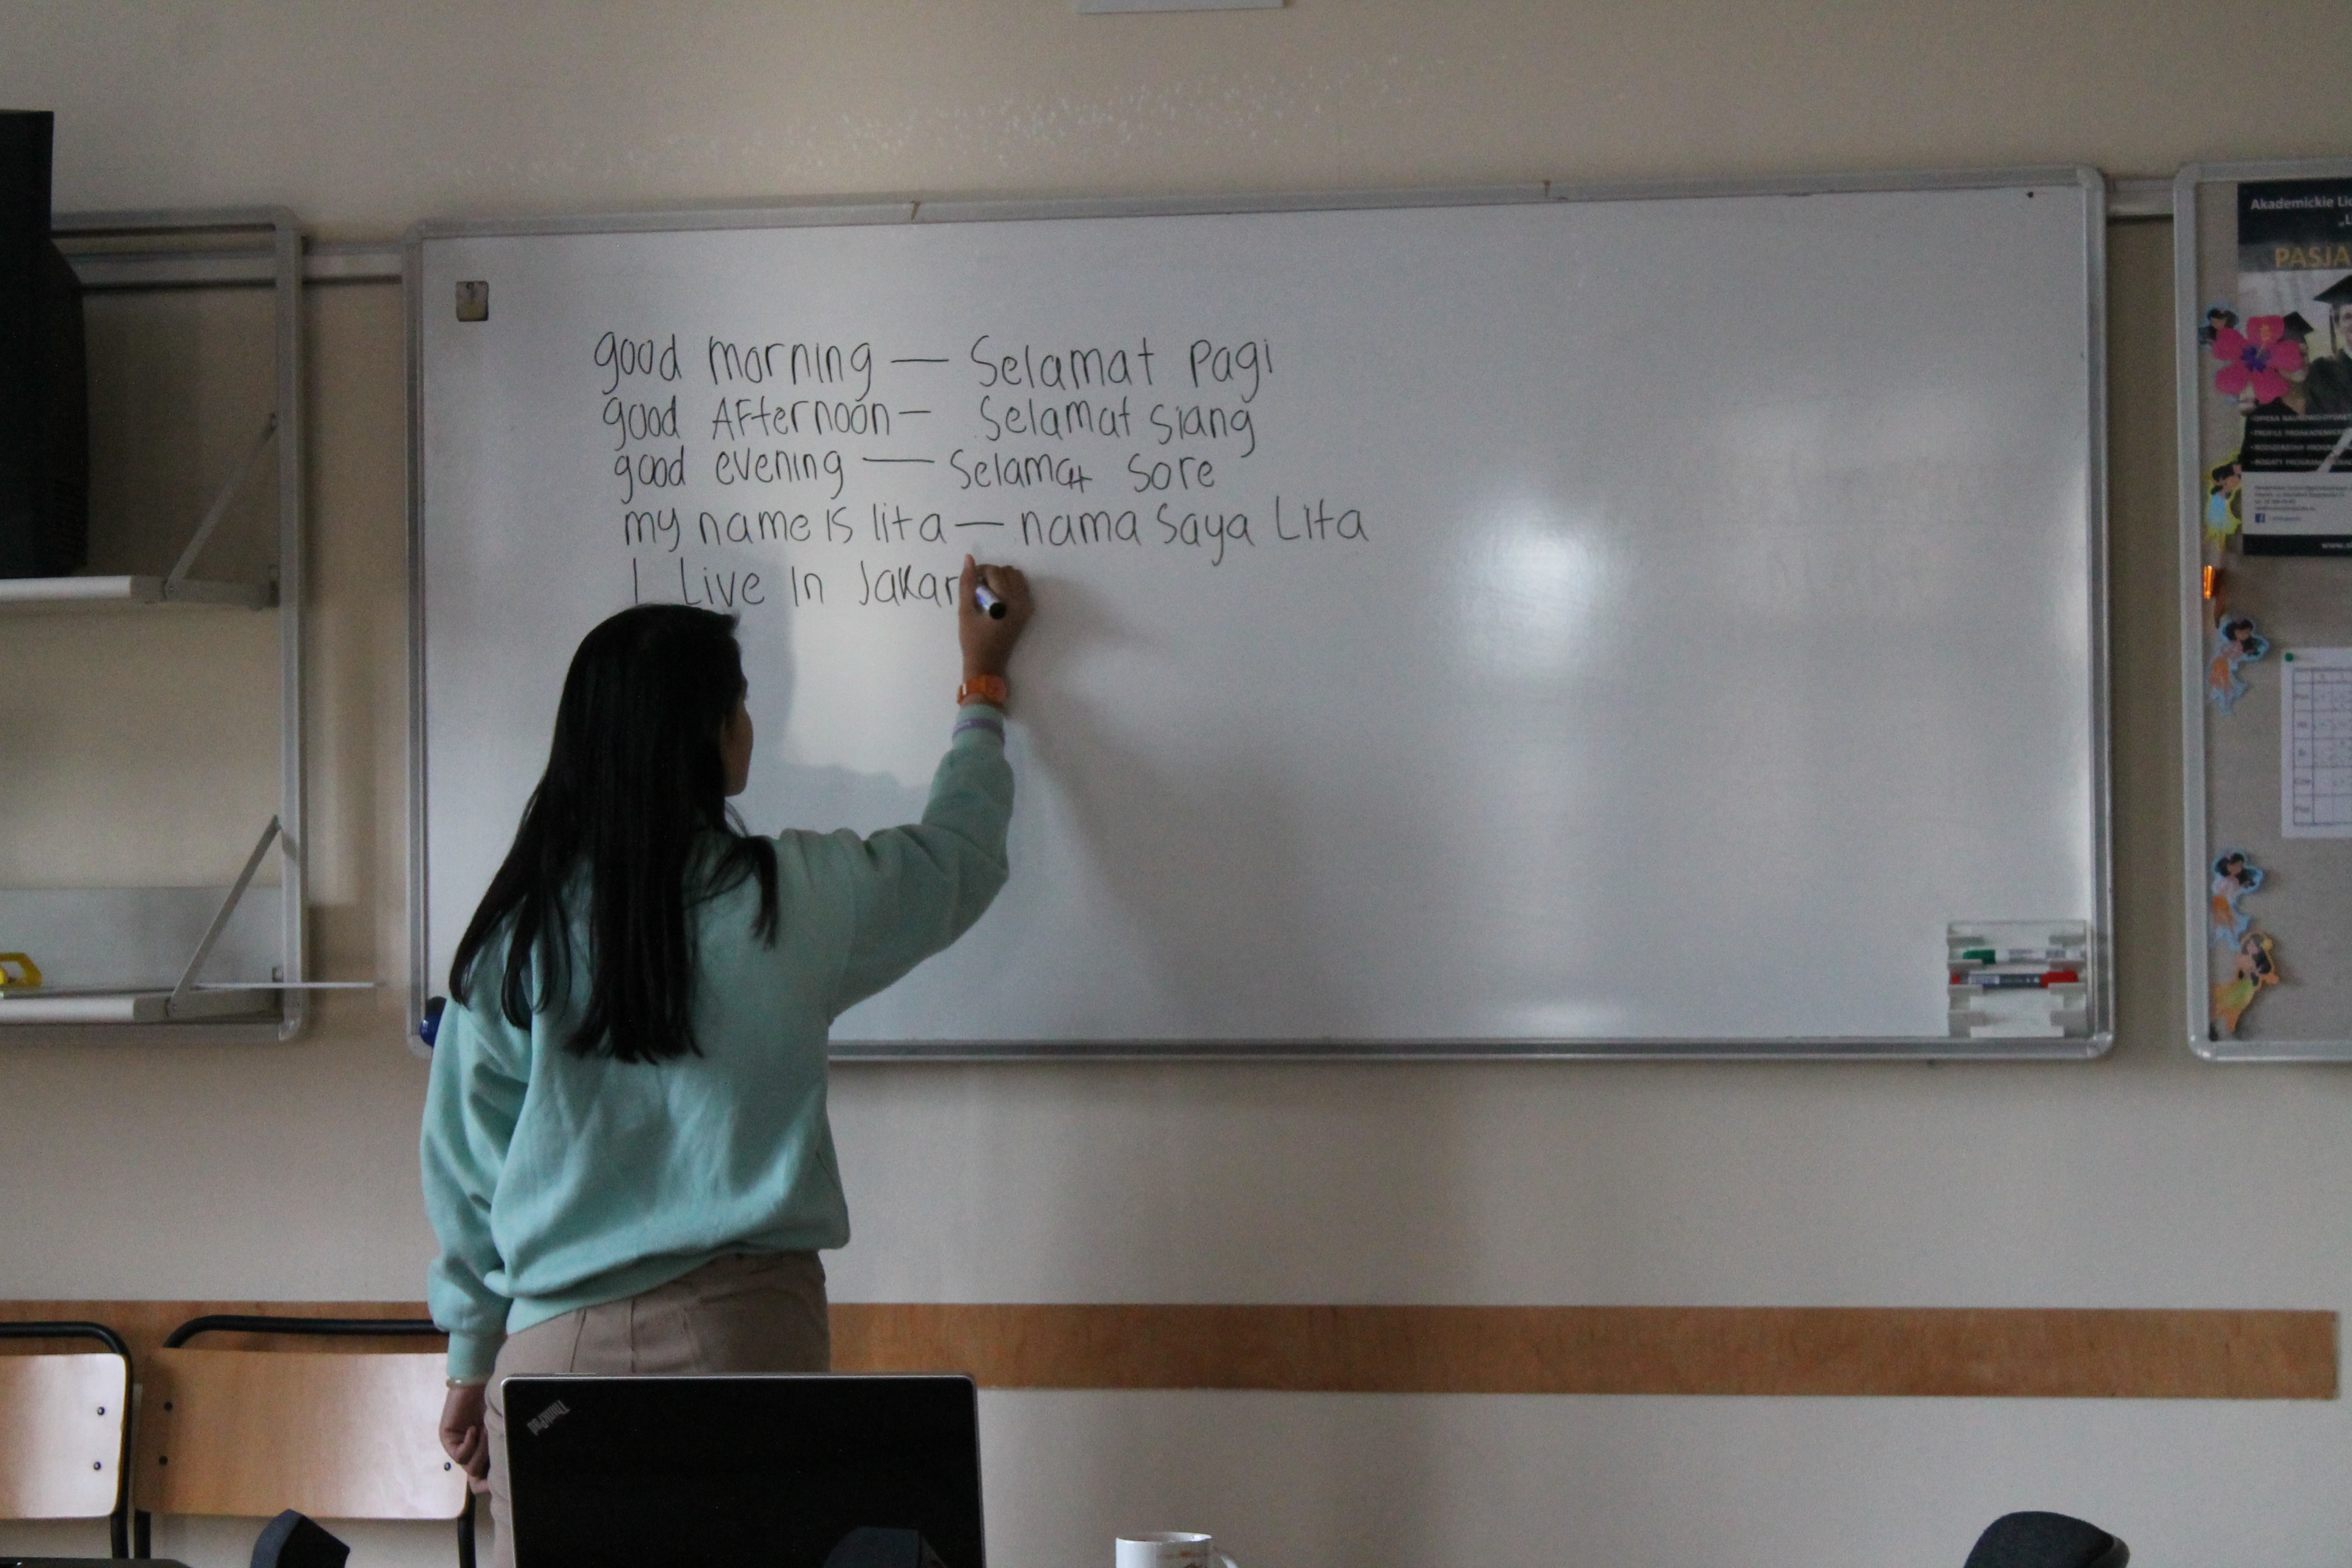 good morning — Selamat pagi
good AFternoon — Selamat siang
good evening — Selamat Sore
my name is lita — nama Saya Lita
I Live In Jakar
Akademickie
PASJA
ThinkPad